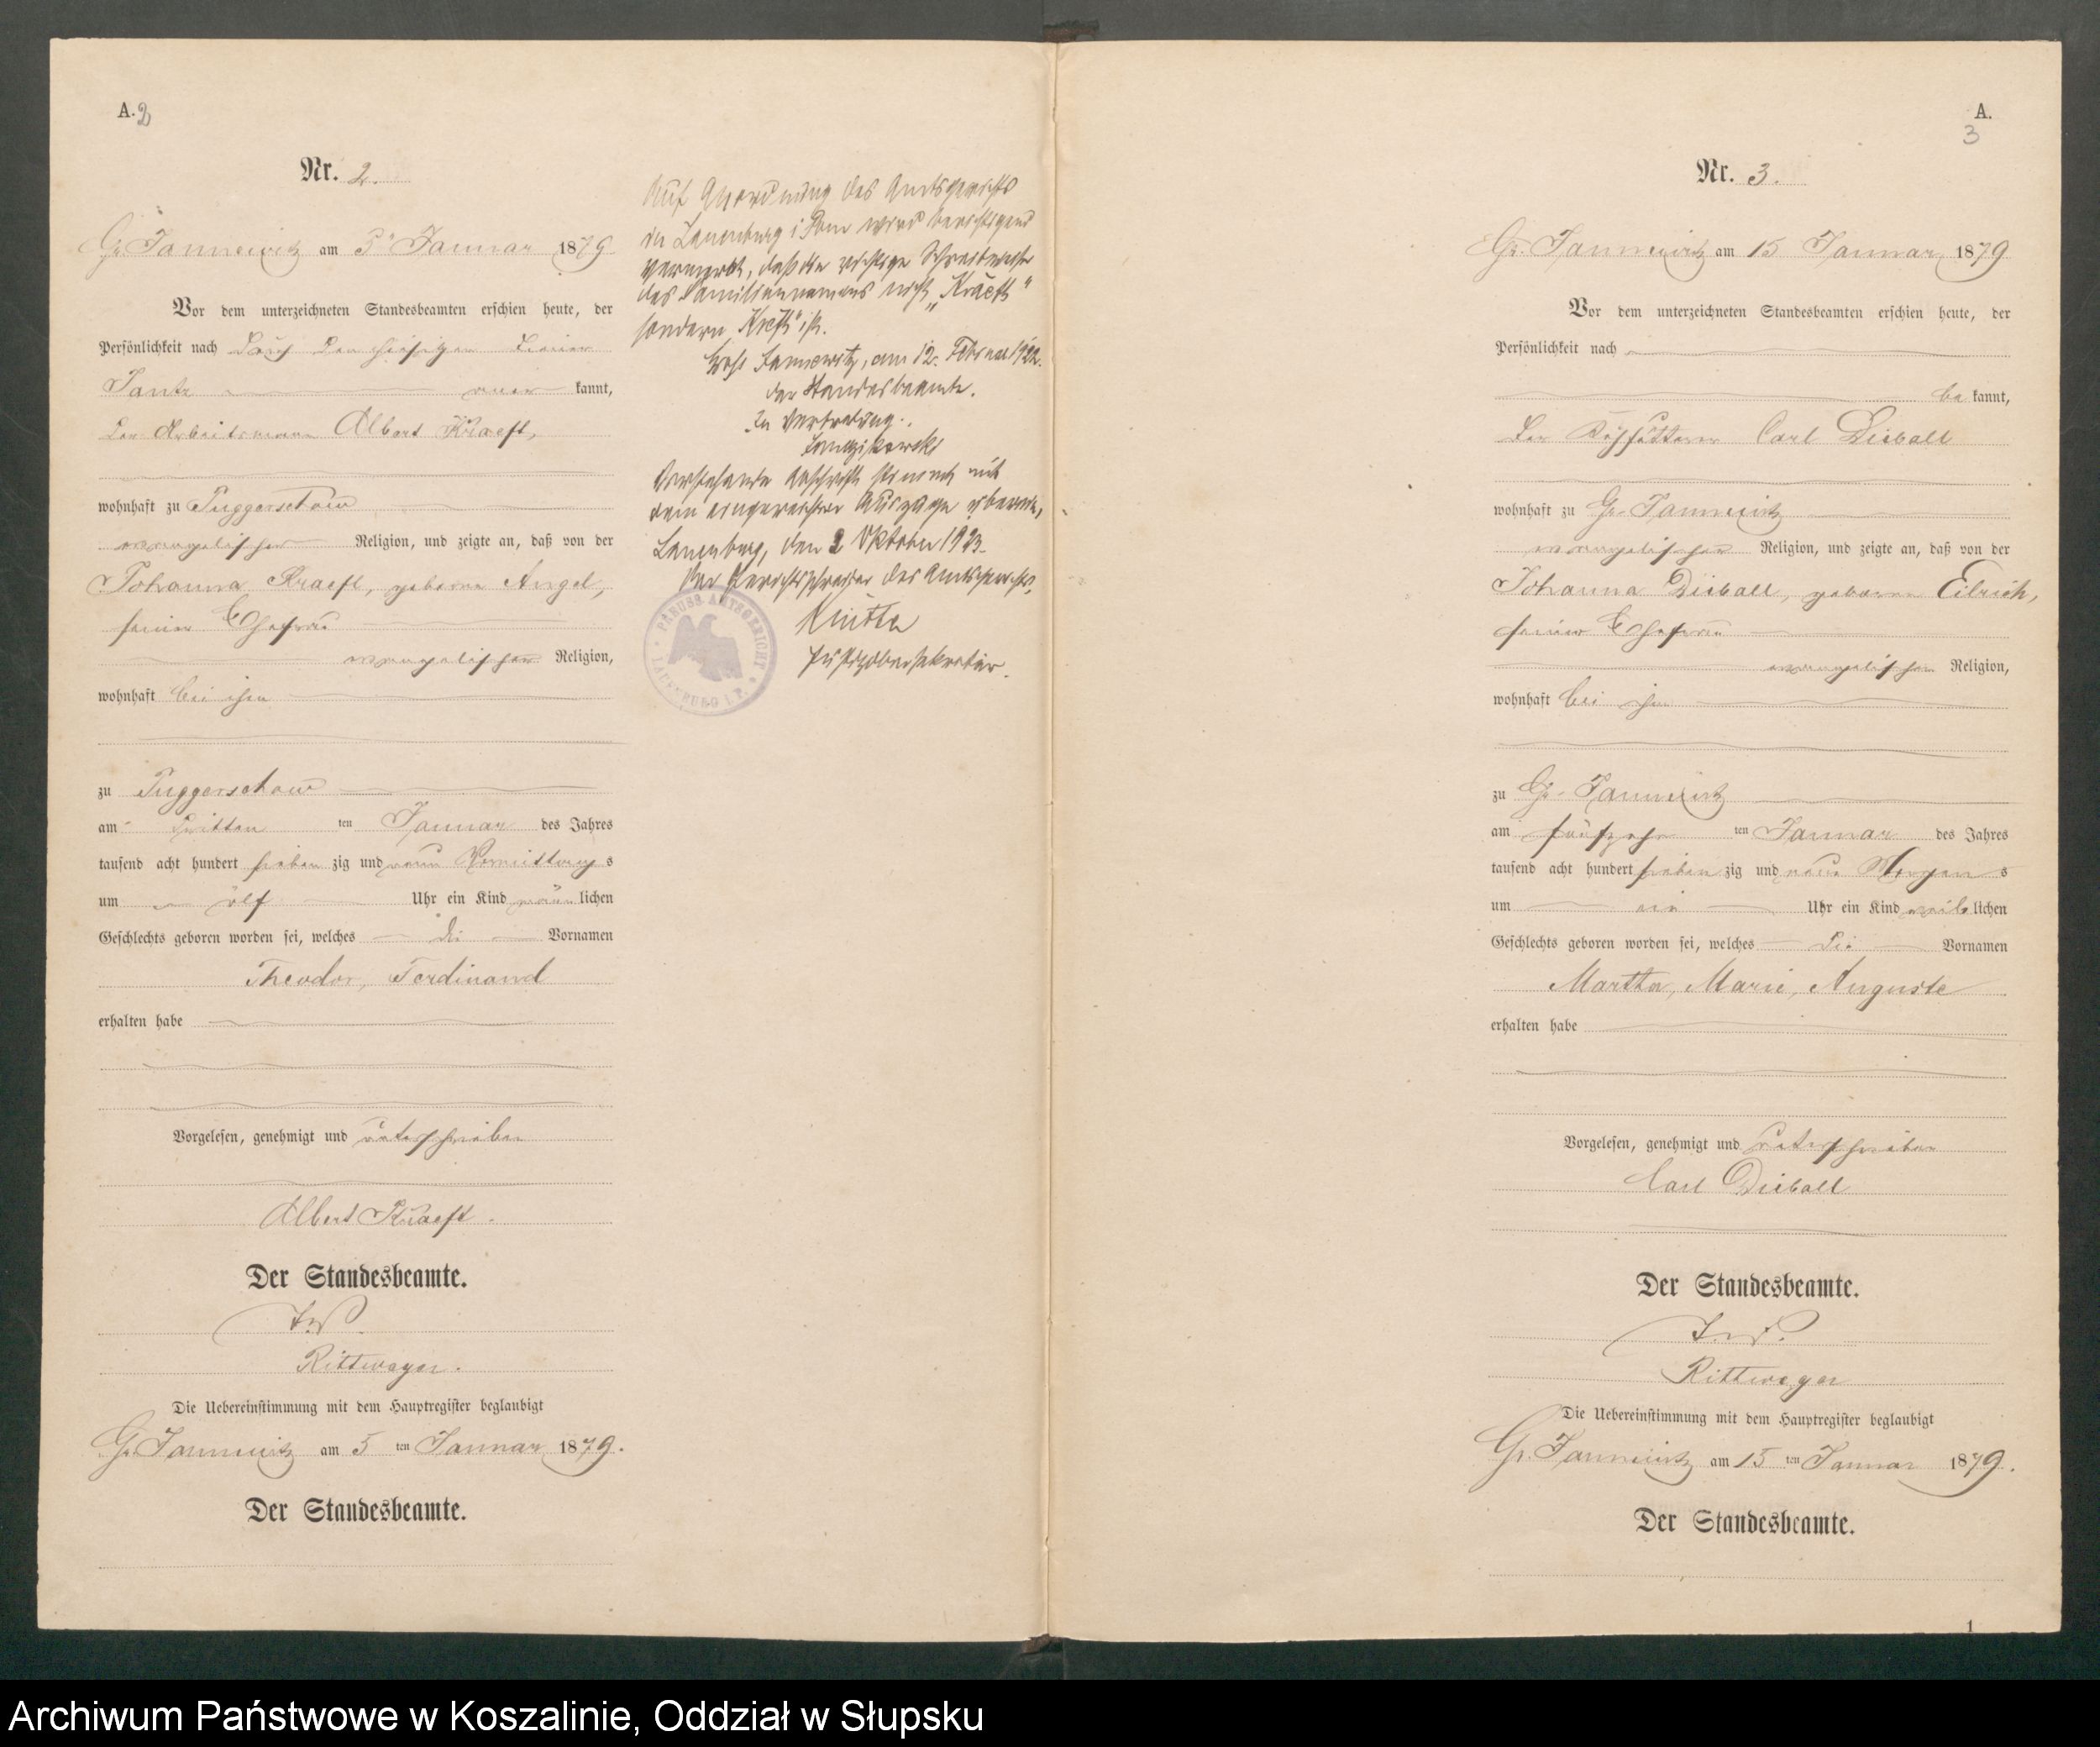 A. 2
Nr. 2.
Gr. Jannewitz am 5. Januar 1879
Vor dem unterzeichneten Standesbeamten erschien heute, der
Persönlichkeit nach durch den hiesigen
Jantz kannt,
der Arbeitsmann Albert Kraeft,
wohnhaft zu Puggerschow
evangelischer Religion, und zeigte an, daß von der
Johanna Kraeft, geborne Angel,
seiner Ehefrau
evangelischer Religion,
wohnhaft bei ihm
zu Puggerschow
am dritten ten Januar des Jahres
tausend acht hundert sieben zig und neun Vormittags
um elf Uhr ein Kind männlichen
Geschlechts geboren worden sei, welches die Vornamen
Theodor, Ferdinand
erhalten habe
Vorgelesen, genehmigt und unterschrieben
Albert Kraeft.
Der Standesbeamte.
J. V.
Rittweger.
Die Uebereinstimmung mit dem Hauptregister beglaubigt
Gr. Jannewitz am 5 ten Januar 1879.
Der Standesbeamte.
Auf Anordnung des Amtsgerichts
in Lauenburg i Pom wird berichtigend
vermerkt, daß die richtige Schreibweise
des Familiennamens nicht "Kraeft"
sondern "Kreft" ist.
Groß Jannewitz, am 12. Februar 1922.
Der Standesbeamte.
In Vertretung.
Vorstehende Abschrift stimmt mit
dem eingereichten Auszuge überein,
Lauenburg, den 2 Oktober 1923.
Der Gerichtsschreiber des Amtsgerichts,
Justizobersekretär.
PREUSS. AMTSGERICHT
LAUENBURG i. P.
A.
3
Nr. 3.
Gr. Jannewitz am 15 Januar 1879
Vor dem unterzeichneten Standesbeamten erschien heute, der
Persönlichkeit nach
be kannt,
der Carl Dieball
wohnhaft zu Gr. Jannewitz
evangelischer Religion, und zeigte an, daß von der
Johanna Dieball, geborne Eilrich,
seiner Ehefrau
evangelischer Religion,
wohnhaft bei ihm
zu Gr. Jannewitz
am fünfzehn ten Januar des Jahres
tausend acht hundert sieben zig und neun Morgens
um ein Uhr ein Kind weiblichen
Geschlechts geboren worden sei, welches die Vornamen
Martha, Marie, Auguste
erhalten habe
Vorgelesen, genehmigt und unterschrieben
Carl Dieball
Der Standesbeamte.
J. V.
Rittweger
Die Uebereinstimmung mit dem Hauptregister beglaubigt
Gr. Jannewitz am 15 ten Januar 1879.
Der Standesbeamte.
1
Archiwum Państwowe w Koszalinie, Oddział w Słupsku